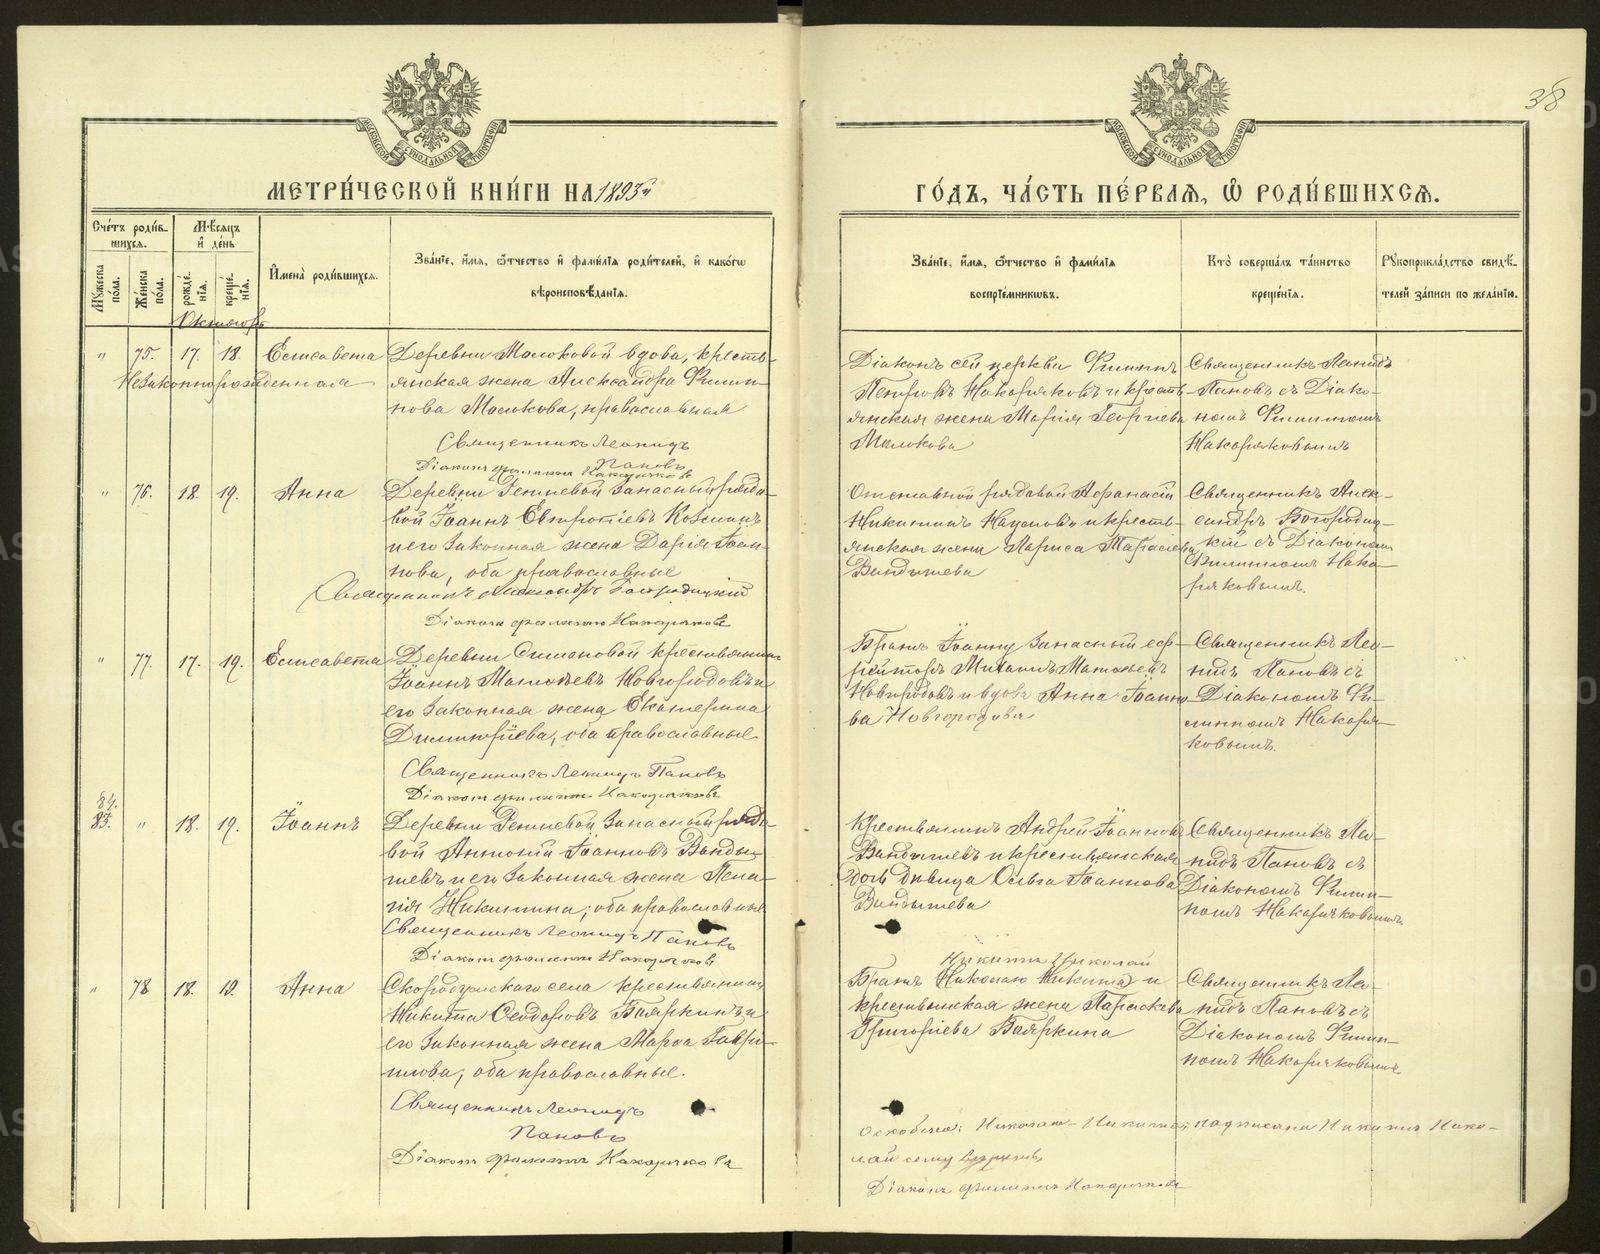 38
МЕТРИ́ЧЕСКОЙ КНИ́ГИ НА 1893й
ГО́ДЪ, ЧА́СТЬ ПЕ́РВАѦ, Ѡ҆ РОДИ́ВШИХСѦ.
Сче́тъ роди́в-
шихсѧ.
Мѣ́сѧцъ
и҆ де́нь
Мꙋ́жеска по́ла.
Же́нска по́ла.
рожде́нїѧ.
креще́нїѧ.
И҆мена̀ роди́вшихсѧ.
Зва́нїе, и҆́мѧ, ѻ҆́тчество и҆ фами́лїѧ роди́телей, и҆ како́гѡ
вѣроисповѣ́данїѧ.
Зва́нїе, и҆́мѧ, ѻ҆́тчество и҆ фами́лїѧ
воспрїе́мникѡвъ.
Кто̀ соверша́лъ та́инство
креще́нїѧ.
Рꙋкоприкла́дство свидѣ́-
телей за́писи по жела́нїю.
Октябрь
" 75. 17. 18. Елисавета
Незаконнорожденная
Деревни Молоковой вдова, кресть-
янская жена Александра Филип-
пова Молокова, православная
Священникъ Леонидъ
Пановъ
Діаконъ Филиппъ Накоряковъ
Діаконъ сей церкви Филиппъ
Петровъ Накоряковъ и кресть-
янская жена Марія Георгіева
Молокова
Священникъ Леонидъ
Пановъ съ Діако-
номъ Филиппомъ
Накоряковымъ
" 76. 18. 19. Анна
Деревни Гешневой запасный рядо-
вой Іоаннъ Евтропіевъ
и его законная жена Дарія Іоан-
нова, оба православные
Священникъ Александръ Богородицкій
Діаконъ Филиппъ Накоряковъ
Отставной рядовой Афанасій
Никитинъ Наумовъ и кресть-
янская жена Лариса Тарасіева
Вандышева
Священникъ Алек-
сандръ Богородиц-
кій съ Діакономъ
Филиппомъ Нако-
ряковымъ.
" 77. 17. 19. Елисавета
Деревни Симановой крестьянинъ
Іоаннъ Матѳѣевъ Новгородовъ и
его законная жена Екатерина
Димитріева, оба православные
Священникъ Леонидъ Пановъ
Діаконъ Филиппъ Накоряковъ
Братъ Іоанну запасный еф-
рейторъ Михаилъ Матѳѣевъ
Новгородовъ и вдова Анна Іоанно-
ва Новгородова
Священникъ Лео-
нидъ Пановъ съ
Діакономъ Фи-
липпомъ Накоря-
ковымъ.
84.
85. " 18. 19. Іоаннъ
Деревни Гешневой запасный рядо-
вой Антоній Іоанновъ Ванды-
шевъ и его законная жена Пела-
гія Никитина, оба православные
Священникъ Леонидъ Пановъ
Діаконъ Филиппъ Накоряковъ
Крестьянинъ Андрей Іоанновъ
Вандышевъ и крестьянская
дочь дѣвица Ольга Іоаннова
Вандышева
Священникъ Ле-
нидъ Пановъ съ
Діакономъ Филип-
помъ Накоряковымъ
" 78 18. 19. Анна
села крестьянинъ
Никита Ѳеодоровъ Бояркинъ и
его законная жена Марѳа Гаврі-
илова, оба православные.
Священникъ Леонидъ
Пановъ
Діаконъ Филиппъ Накоряковъ
Никиты Николай
Братъ Николаю Никита и
крестьянская жена Параскева
Григоріева Бояркина
Священникъ Ле-
нидъ Пановъ съ
Діакономъ Филип-
помъ Накоряковымъ
Николаю - Никита, надписано Никиты Нико-
лай сему
Діаконъ Филиппъ Накоряковъ